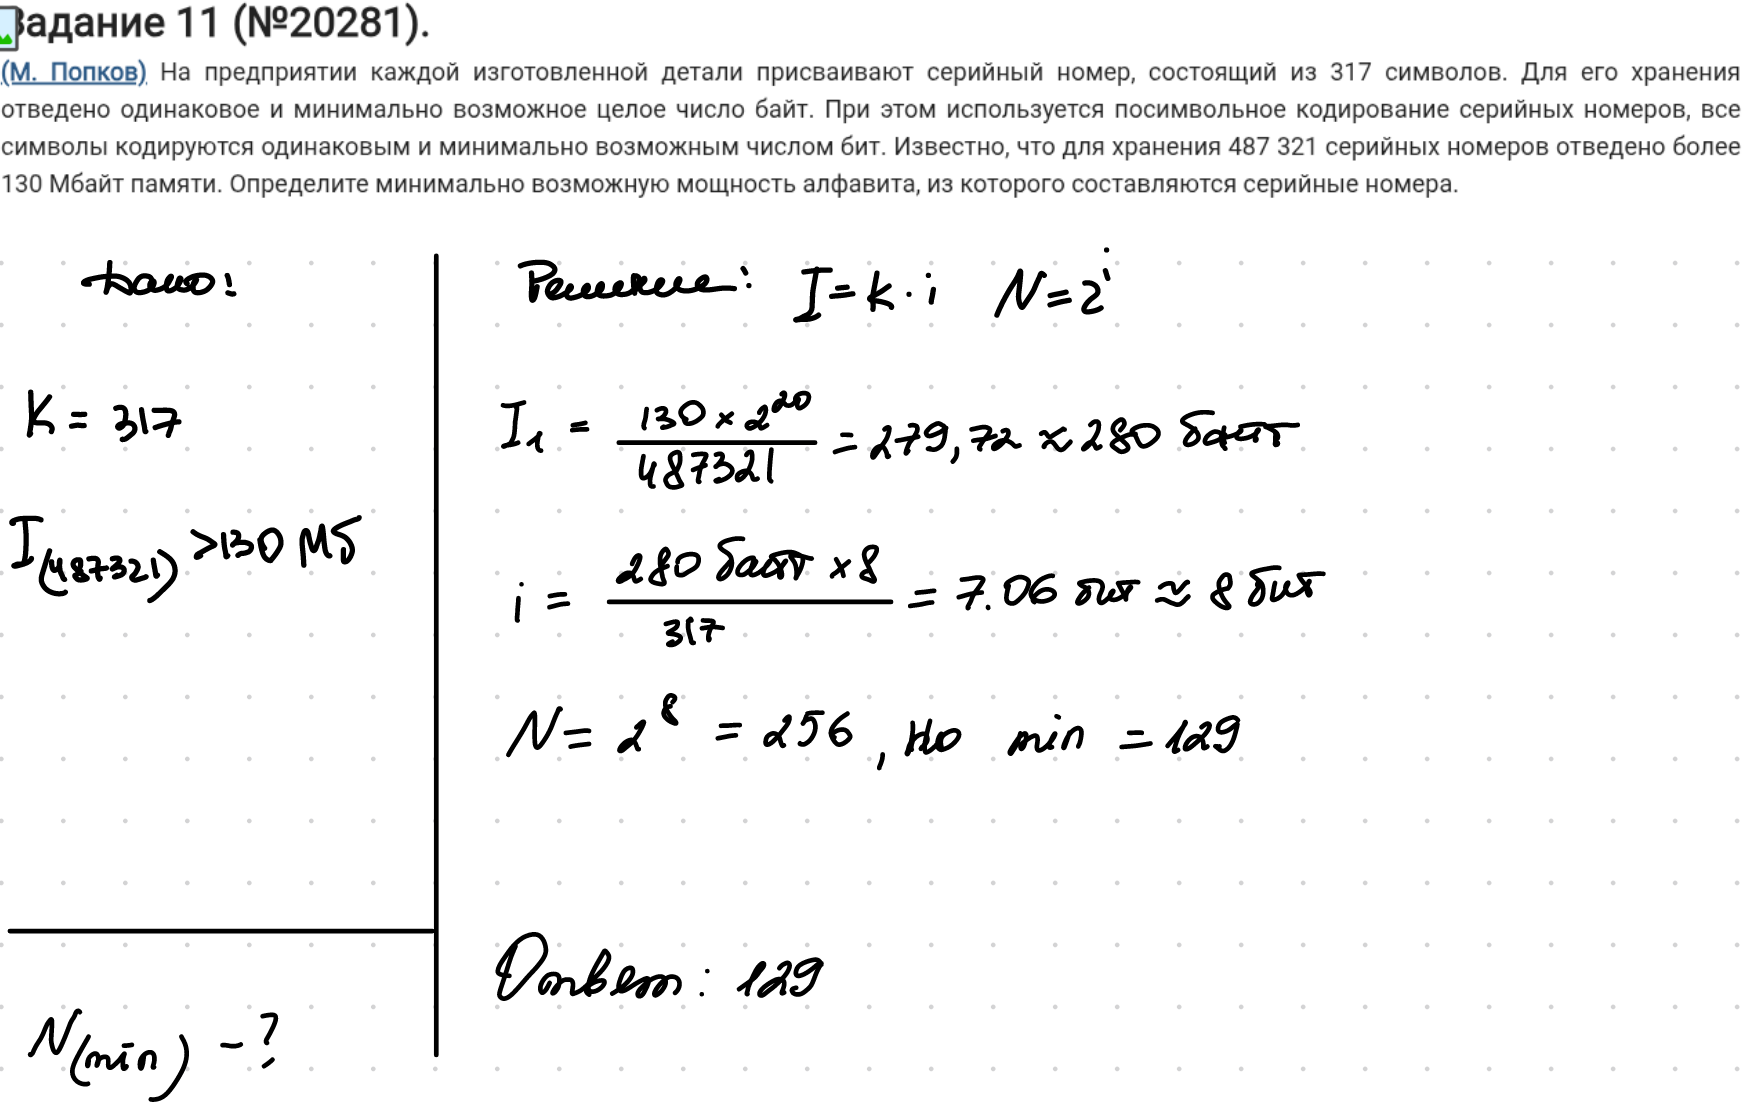 Задание 11 (№20281).
(М. Попков) На предприятии каждой изготовленной детали присваивают серийный номер, состоящий из 317 символов. Для его хранения
отведено одинаковое и минимально возможное целое число байт. При этом используется посимвольное кодирование серийных номеров, все
символы кодируются одинаковым и минимально возможным числом бит. Известно, что для хранения 487 321 серийных номеров отведено более
130 Мбайт памяти. Определите минимально возможную мощность алфавита, из которого составляются серийные номера.
Дано:
K = 317
I(487321) >130 Мб
N(min) - ?
Решение: I = K · i N = 2^i
I₁ = 130 × 2^20 / 487321 = 279,72 ≈ 280 байт
i = 280 байт × 8 / 317 = 7.06 бит ≈ 8 бит
N = 2^8 = 256, но min = 129
Ответ: 129